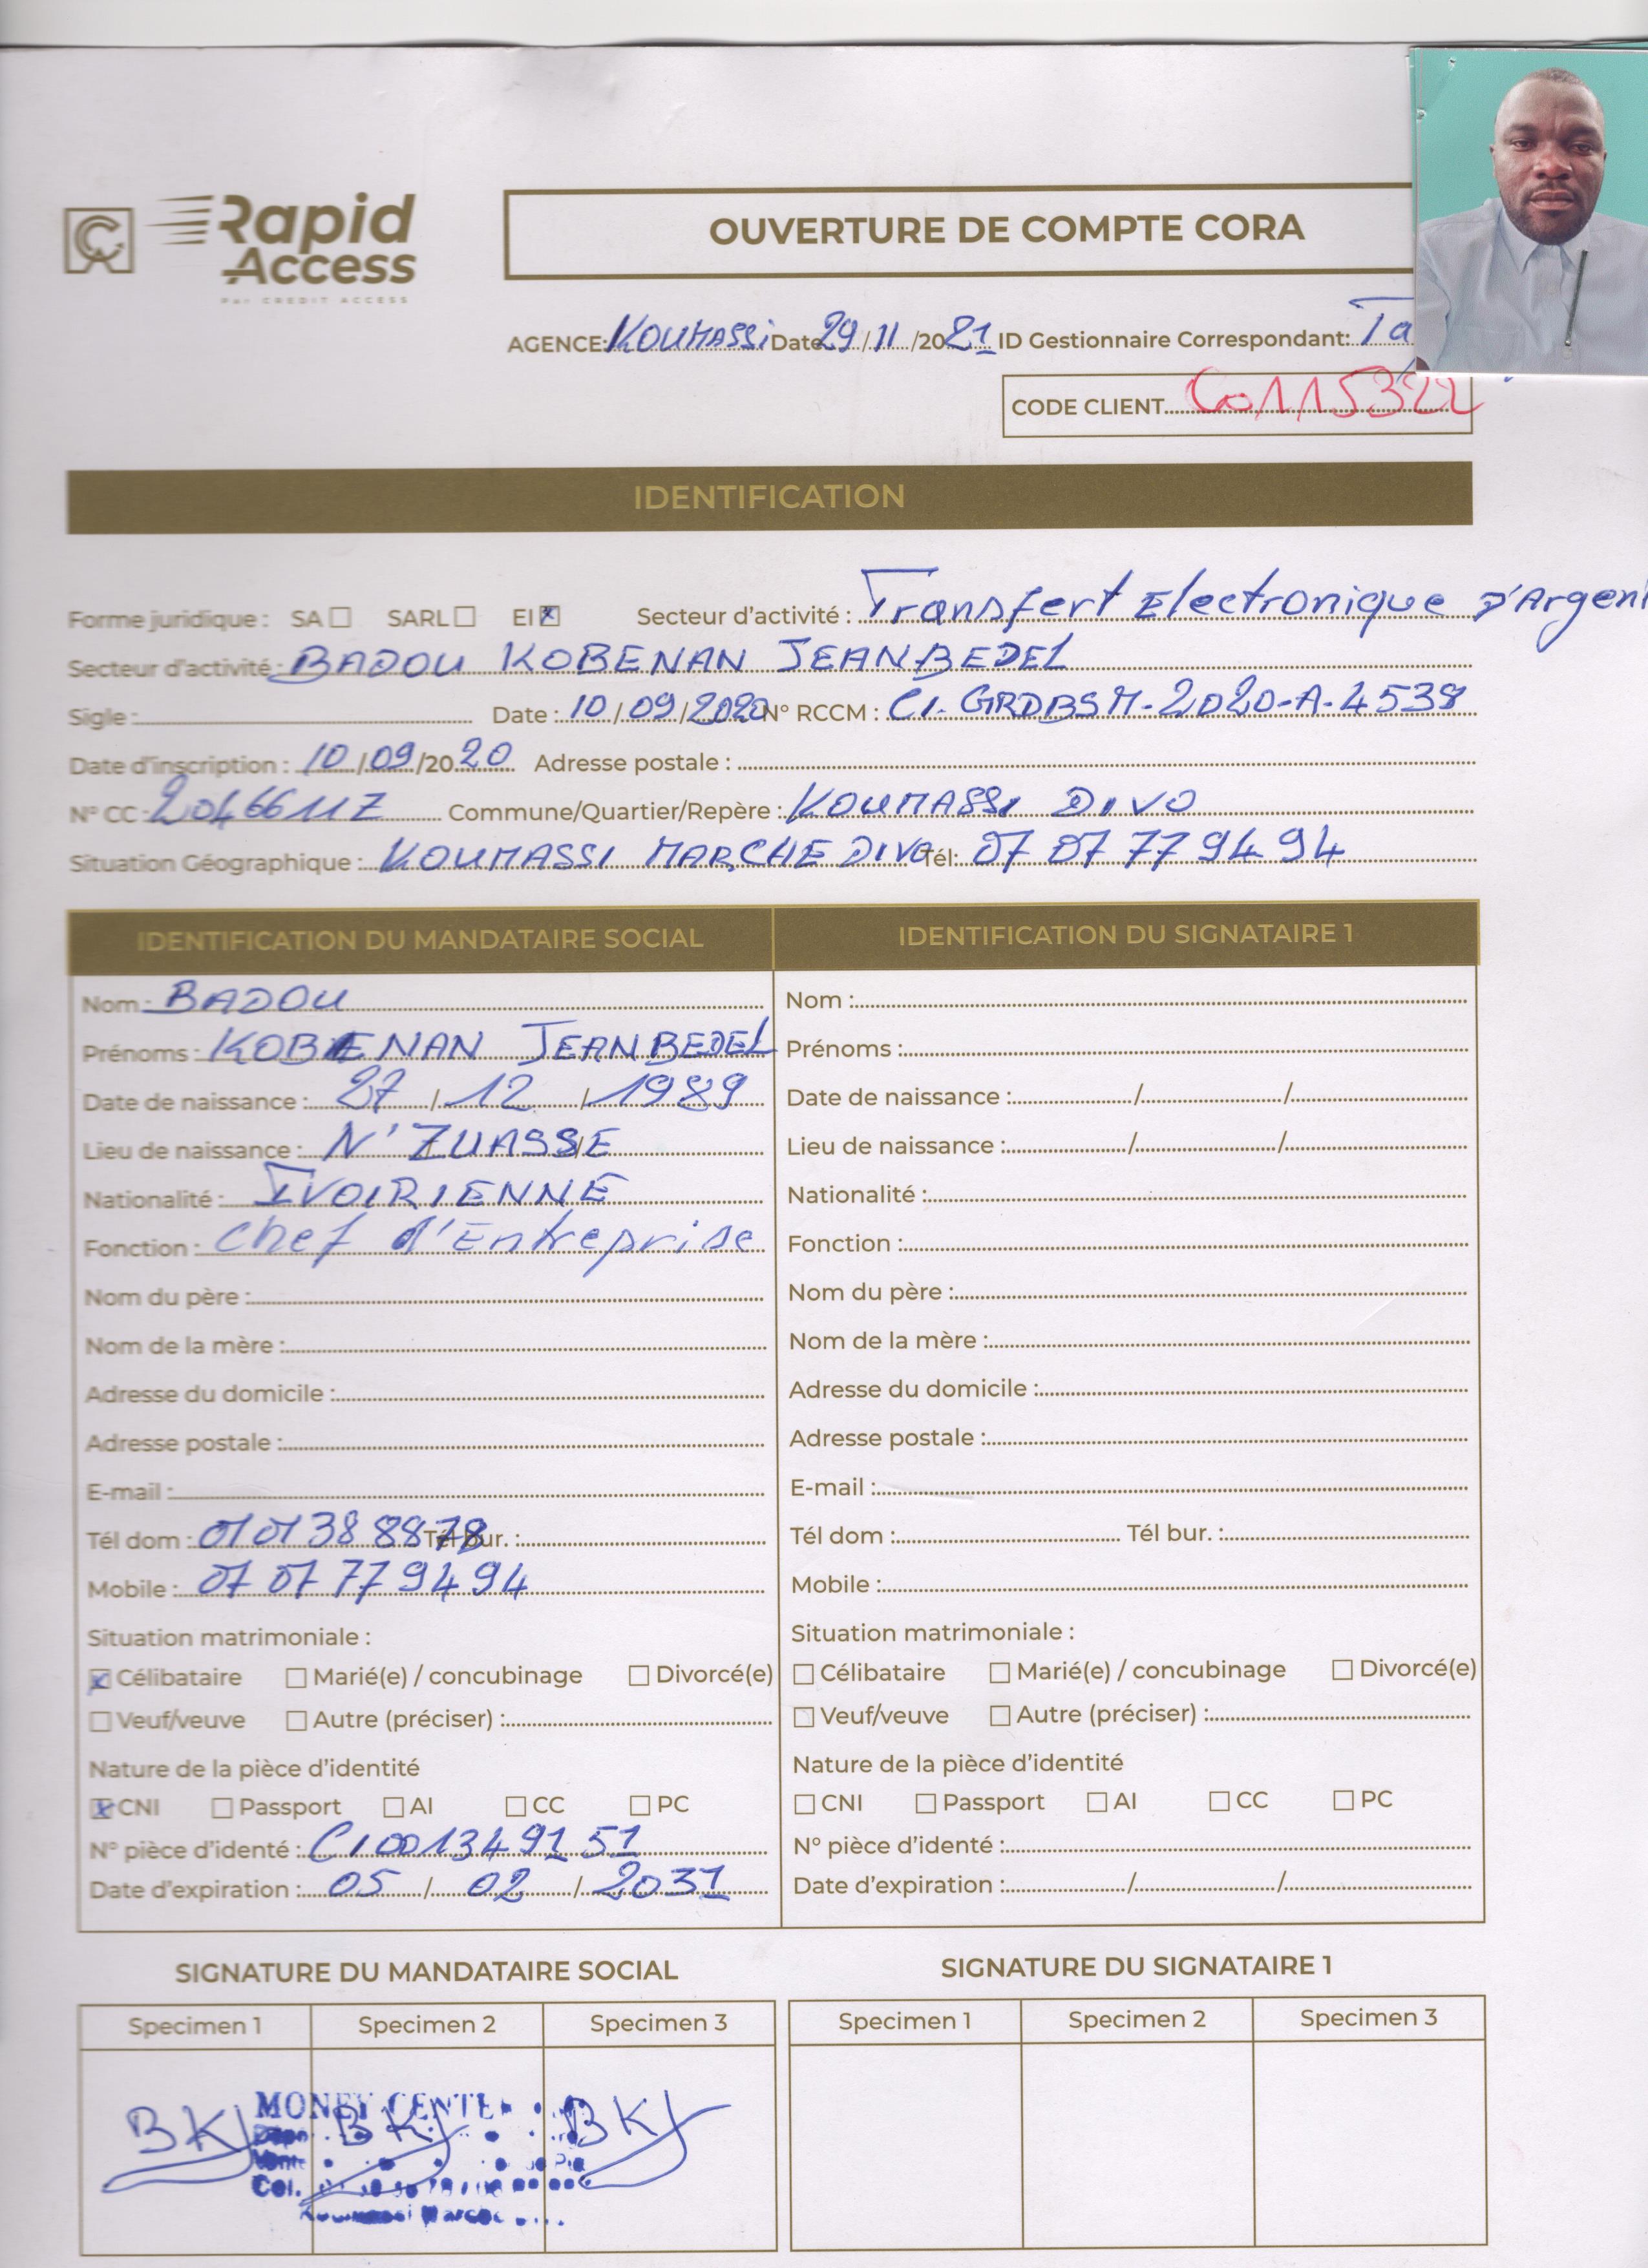 Rapid Access
Par CREDIT ACCESS
OUVERTURE DE COMPTE CORA
AGENCE: KOUMASSI Date 29/11/2021 ID Gestionnaire Correspondant: Ta
CODE CLIENT C0115322
IDENTIFICATION
Forme juridique : SA ☐ SARL ☐ EI ☒ Secteur d'activité : Transfert Electronique D'Argent
Secteur d'activité : BADOU KOBENAN JEANBEDEL
Sigle : Date : 10/09/2020 N° RCCM : CI-GRDBSM-2020-A-4538
Date d'inscription : 10/09/2020 Adresse postale :
N° CC : 2046611Z Commune/Quartier/Repère : KOUMASSI DIVO
Situation Géographique : KOUMASSI MARCHE DIVO Tél: 07 07 77 94 94
IDENTIFICATION DU MANDATAIRE SOCIAL
Nom : BADOU
Prénoms : KOBENAN JEANBEDEL
Date de naissance : 27/12/1989
Lieu de naissance : N'ZUASSE
Nationalité : IVOIRIENNE
Fonction : Chef d'Entreprise
Nom du père :
Nom de la mère :
Adresse du domicile :
Adresse postale :
E-mail :
Tél dom : 01 01 38 88 78 Tél bur. :
Mobile : 07 07 77 94 94
Situation matrimoniale :
☒ Célibataire ☐ Marié(e) / concubinage ☐ Divorcé(e)
☐ Veuf/veuve ☐ Autre (préciser) :
Nature de la pièce d'identité
☒ CNI ☐ Passport ☐ AI ☐ CC ☐ PC
N° pièce d'identé : CI001349151
Date d'expiration : 05/02/2031
IDENTIFICATION DU SIGNATAIRE 1
Nom :
Prénoms :
Date de naissance : / /
Lieu de naissance : / /
Nationalité :
Fonction :
Nom du père :
Nom de la mère :
Adresse du domicile :
Adresse postale :
E-mail :
Tél dom : Tél bur. :
Mobile :
Situation matrimoniale :
☐ Célibataire ☐ Marié(e) / concubinage ☐ Divorcé(e)
☐ Veuf/veuve ☐ Autre (préciser) :
Nature de la pièce d'identité
☐ CNI ☐ Passport ☐ AI ☐ CC ☐ PC
N° pièce d'identé :
Date d'expiration : / /
SIGNATURE DU MANDATAIRE SOCIAL
Specimen 1 Specimen 2 Specimen 3
BKJ BKJ BKJ
MONEY CENTE
Cel.
SIGNATURE DU SIGNATAIRE 1
Specimen 1 Specimen 2 Specimen 3